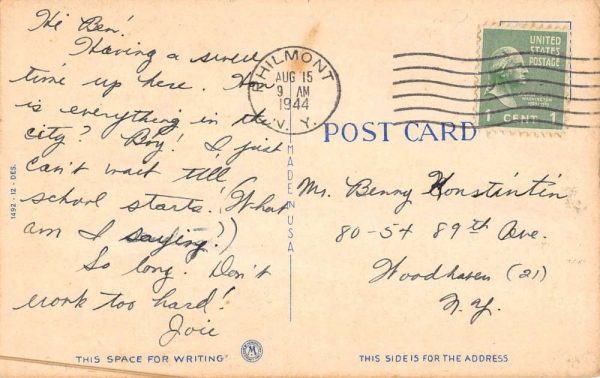 Hi Ben!
Having a swell
time up here. How
is everything in the
city? Boy! I just
can't wait till
school starts. (What
am I saying?)
So long. Don't
work too hard!
Joie
THIS SPACE FOR WRITING
1492-12-DES.
MADE IN USA
PHILMONT
AUG 15
9 AM
1944
N.Y.
UNITED
STATES
POSTAGE
WASHINGTON
1 CENT 1
POST CARD
Mr. Benny Konstintin
80-54 89th Ave.
Woodhaven (21)
N.Y.
THIS SIDE IS FOR THE ADDRESS